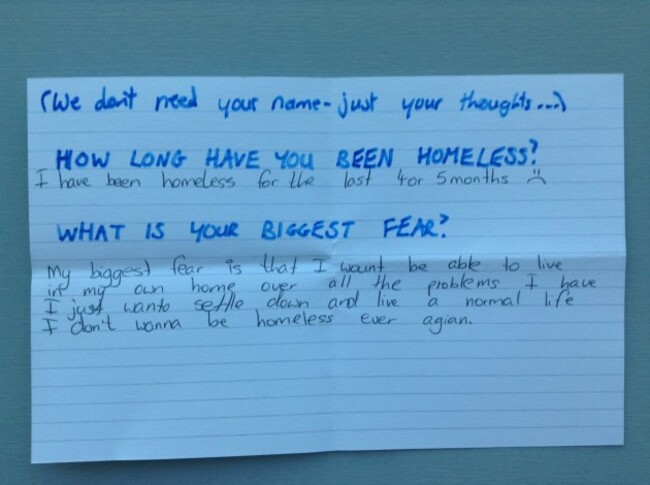 (We don't need your name - just your thoughts...)
HOW LONG HAVE YOU BEEN HOMELESS?
I have been homeless for the last 4 or 5 months :(
WHAT IS YOUR BIGGEST FEAR?
My biggest fear is that I wount be able to live
in my own home over all the problems I have
I just wanto settle down and live a normal life
I don't wanna be homeless ever agian.